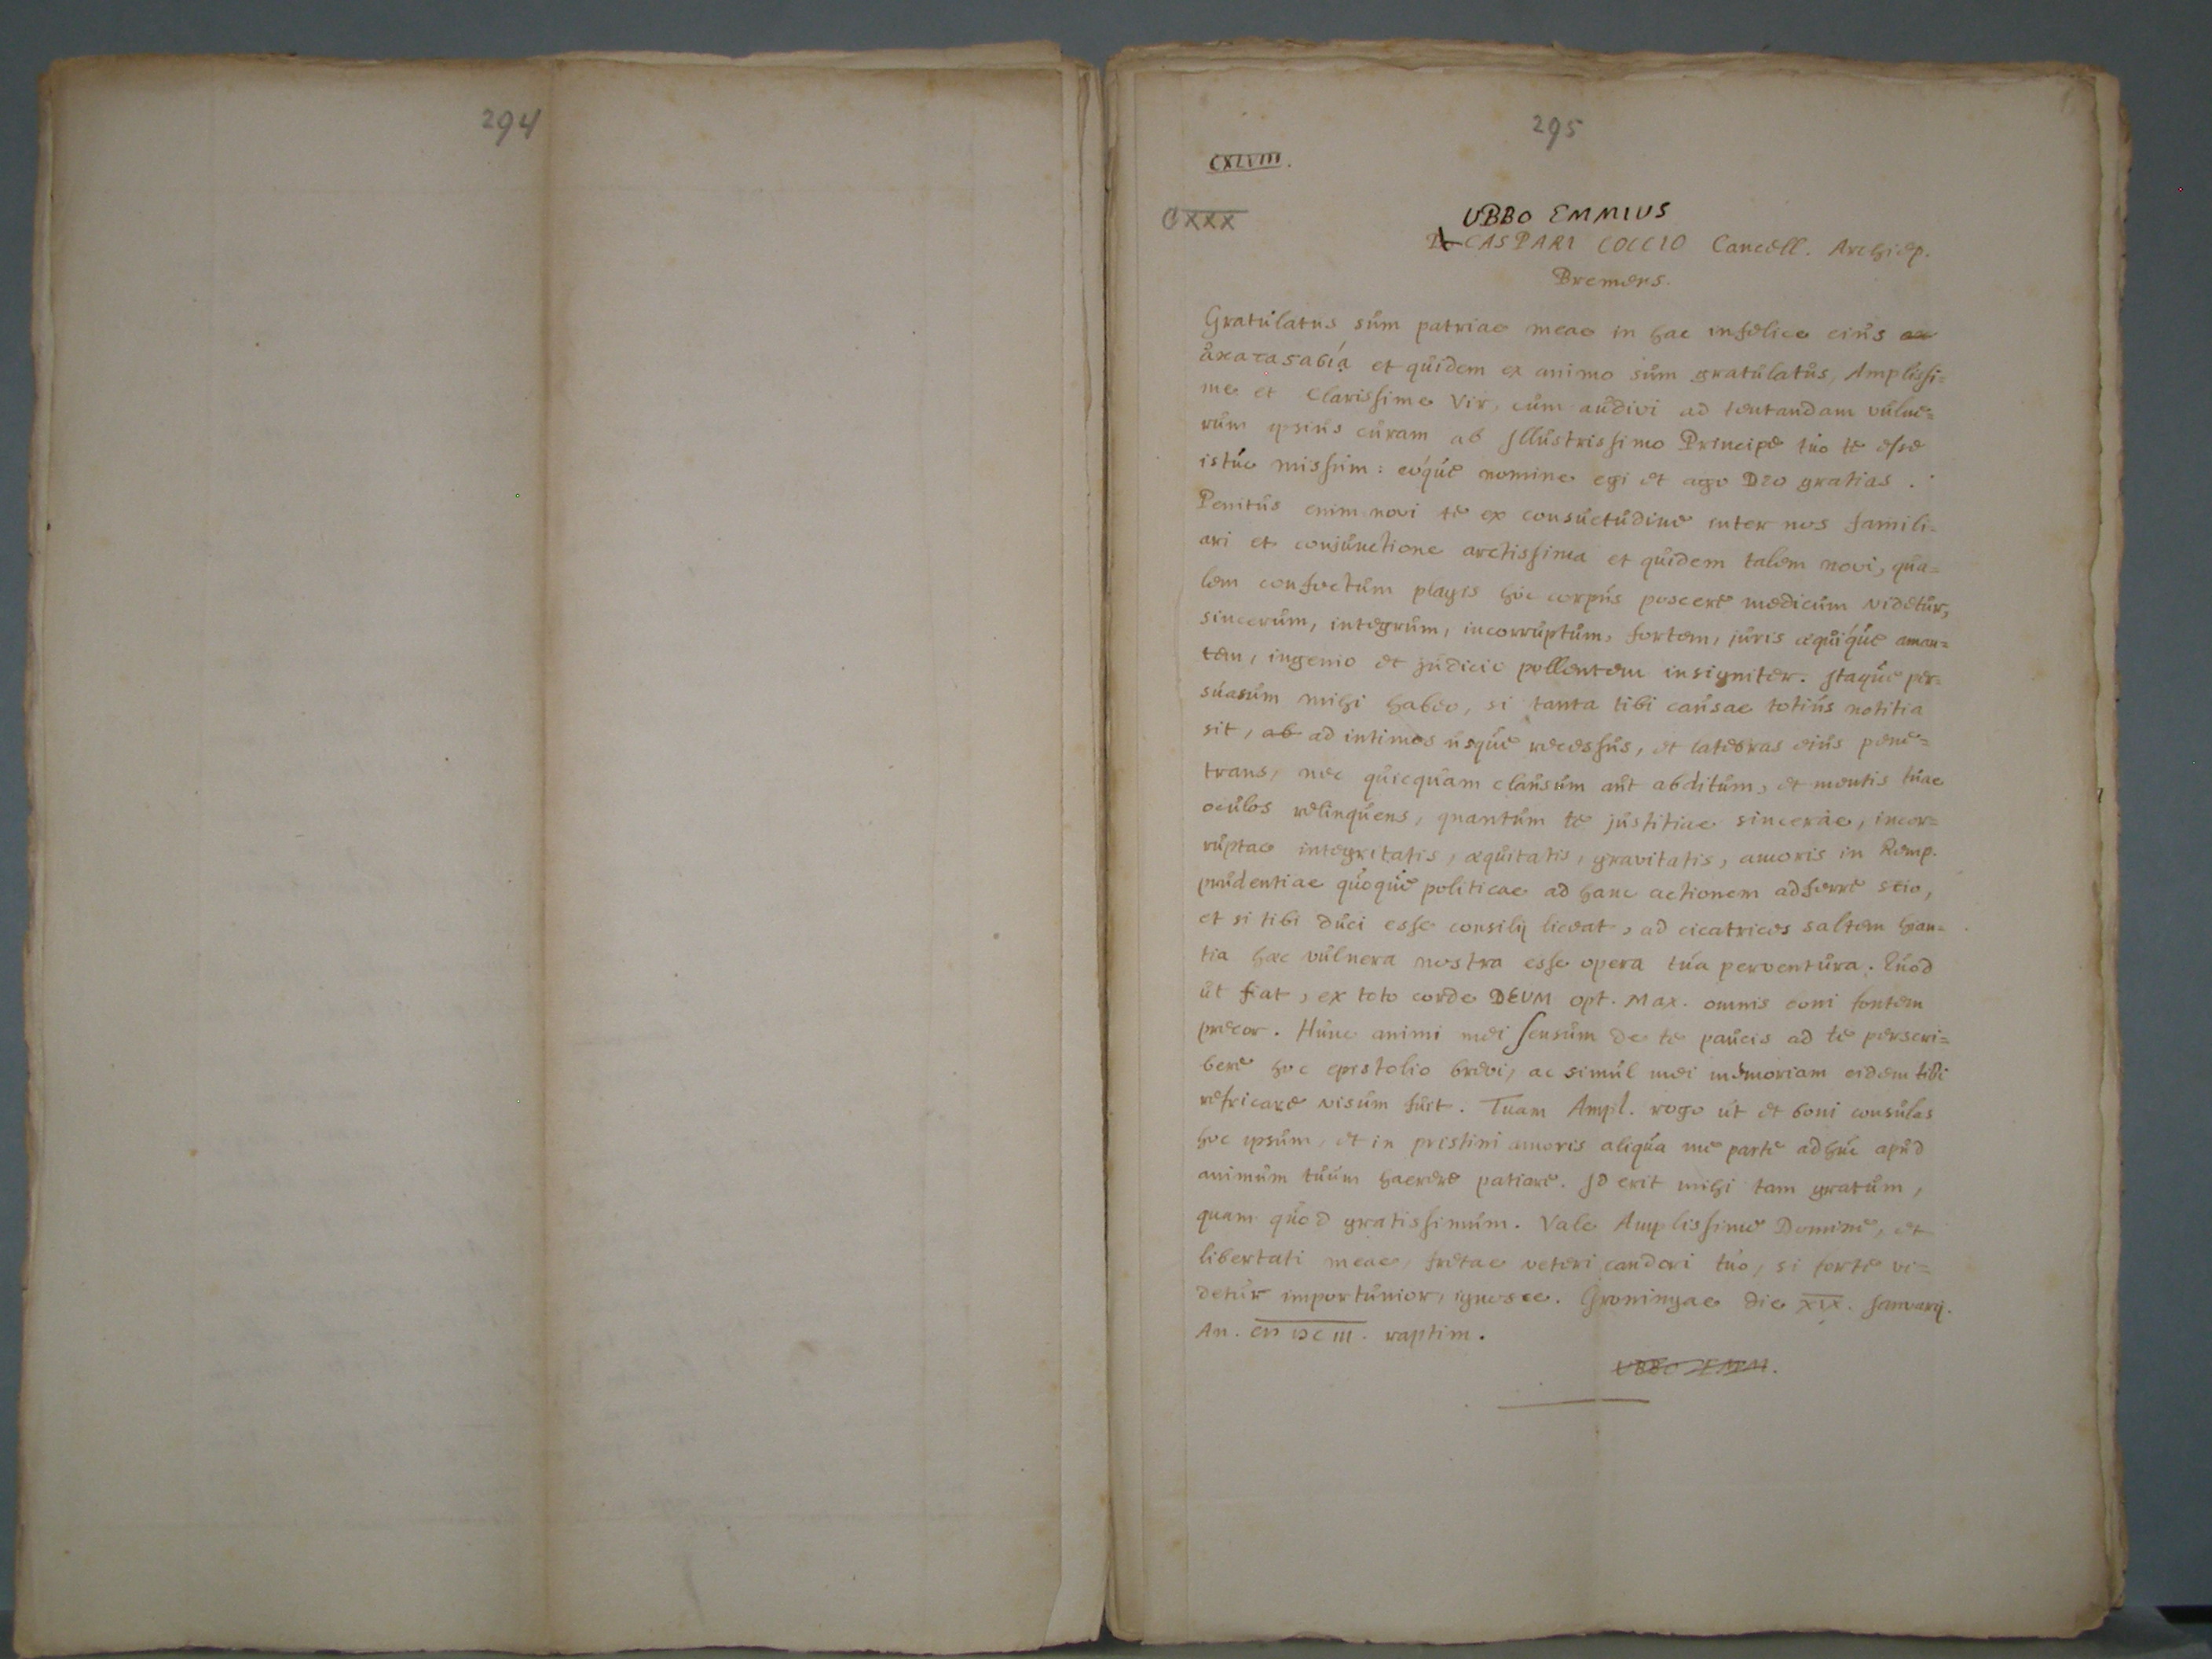 294
295
CXLVIII.
CXXX
UBBO EMMIUS
D. CASPARI COCCIO Cancell. Archiep.
Bremens.
Gratulatus sum patriae meae in hac infelice eius
ἀκαταστασίᾳ et quidem ex animo sum gratulatus, Amplissi=
me et Clarissime Vir, cum audivi ad tentandam vulne=
rum ipsius curam ab Illustrissimo Principe tuo te esse
istuc missum: eoque nomine egi et ago Deo gratias.
Penitus enim novi te ex consuetudine inter nos famili=
ari et conjunctione arctissima et quidem talem novi, qua=
lem confectum plagis hoc corpus poscere medicum videtur,
sincerum, integrum, incorruptum, fortem, juris aequique aman=
tem, ingenio et judicio pollentem insigniter. Itaque per=
suasum mihi habeo, si tanta tibi causae totius notitia
sit, ab ad intimos usque recessus, et latebras eius pene=
trans, nec quicquam clausum aut abditum, et mentis tuae
oculos relinquens, quantum te justitiae sincerae, incor=
ruptae integritatis, aequitatis, gravitatis, amoris in Remp.
prudentiae quoque politicae ad hanc actionem adferre scio,
et si tibi duci esse consilij liceat, ad cicatrices saltem hian=
tia haec vulnera nostra esse opera tua perventura. Quod
ut fiat, ex toto corde DEUM opt. Max. omnis boni fontem
precor. Hunc animi mei sensum de te paucis ad te perscri=
bere hoc epistolio brevi, ac simul mei memoriam eidem tibi
refricare visum fuit. Tuam Ampl. rogo ut et boni consulas
hoc ipsum, et in pristini amoris aliqua me parte adhuc apud
animum tuum haerere patiare. Id erit mihi tam gratum,
quam quod gratissimum. Vale Amplissime Domine, et
libertati meae, fretae veteri candori tuo, si forte vi=
detur importunior, ignosce. Groningae die XIX. Januarij.
An. CIↃ IↃC III. raptim.
UBBO EMM.